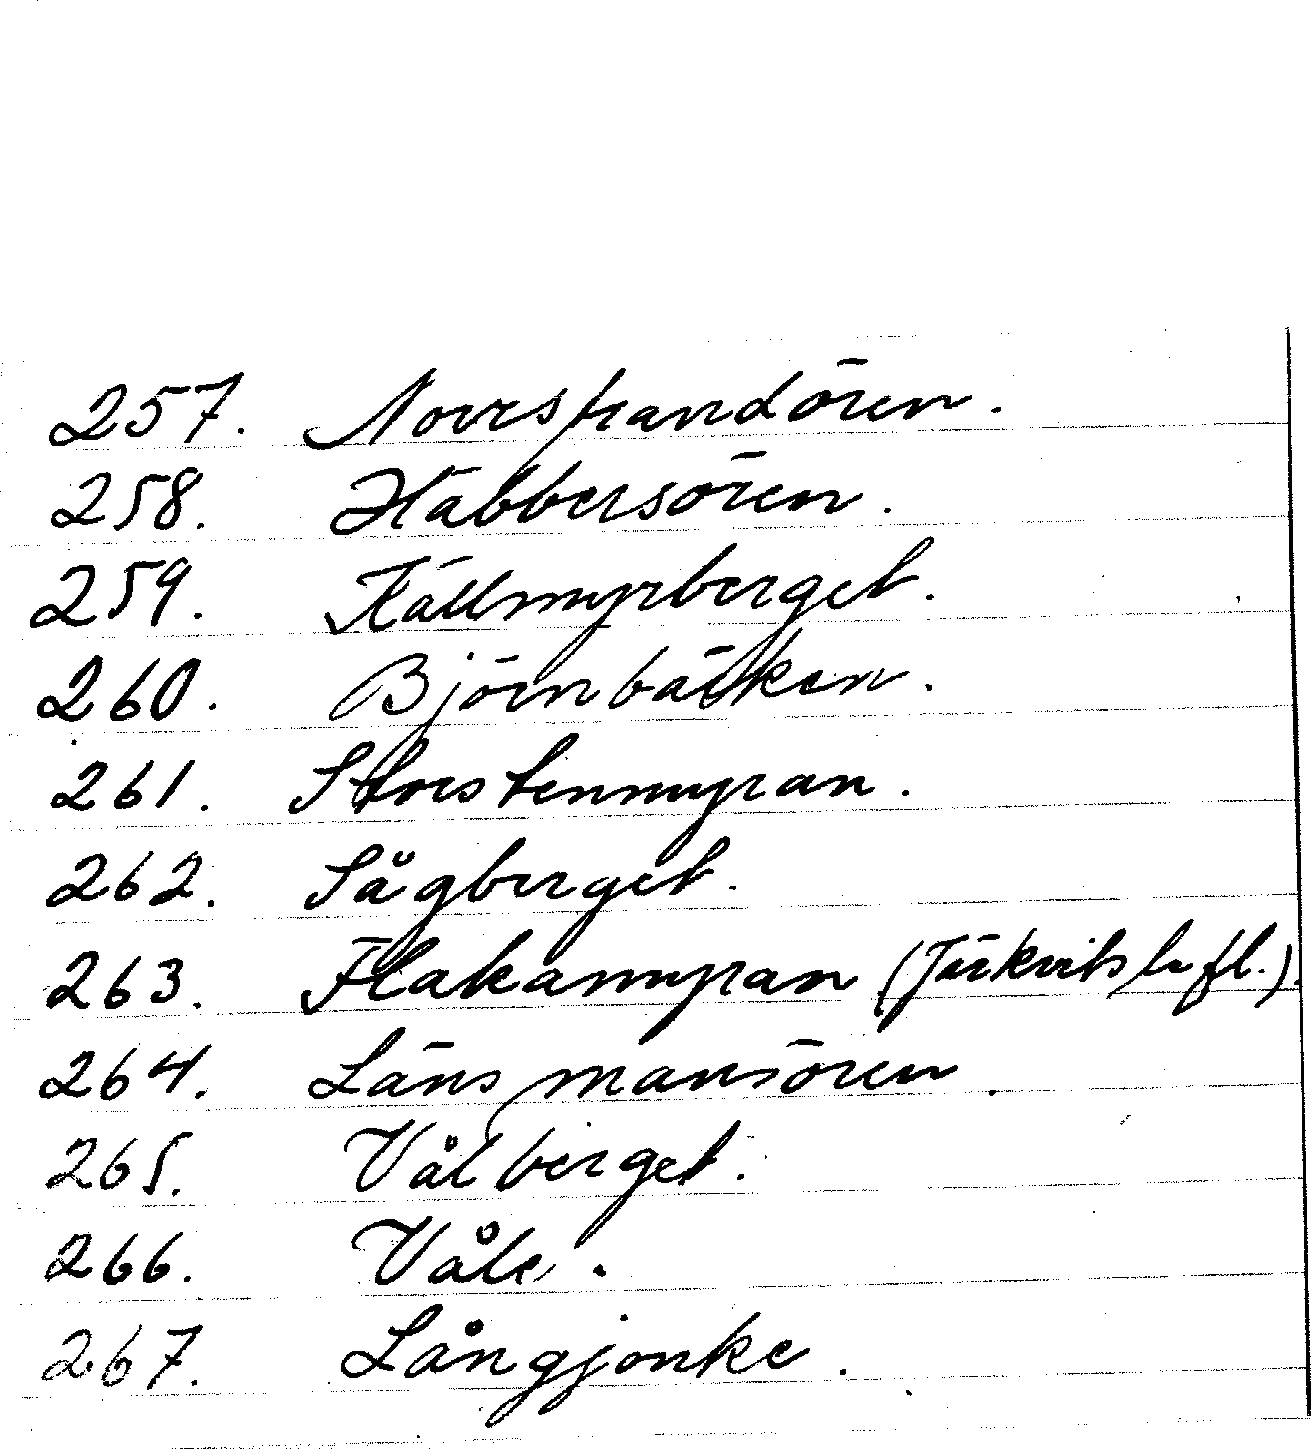 257. Norrstrandören.
258. Häbbersören.
259. Källmyrberget.
260. Björnbäcken.
261. Storstenmyran.
262. Sågberget.
263. Flakamyran
264. Länsmansören.
265. Vålberget.
266. Våle.
267. Långjonke.